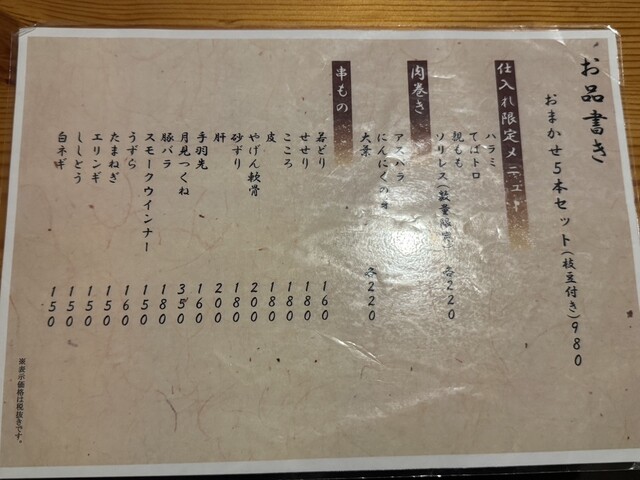 お品書き
おまかせ5本セット(枝豆付き)980
仕入れ限定メニュー
ハラミ
てばトロ
親もも
ソリレス(数量限定) 各220
肉巻き
アスパラ
にんにくの芽
大葉 各220
串もの
若どり 160
せせり 180
こころ 180
皮 180
やげん軟骨 200
砂ずり 180
肝 200
手羽先 160
月見つくね 350
豚バラ 180
スモークウインナー 150
うずら 160
たまねぎ 150
エリンギ 150
ししとう 150
白ネギ 150
※表示価格は税抜きです。